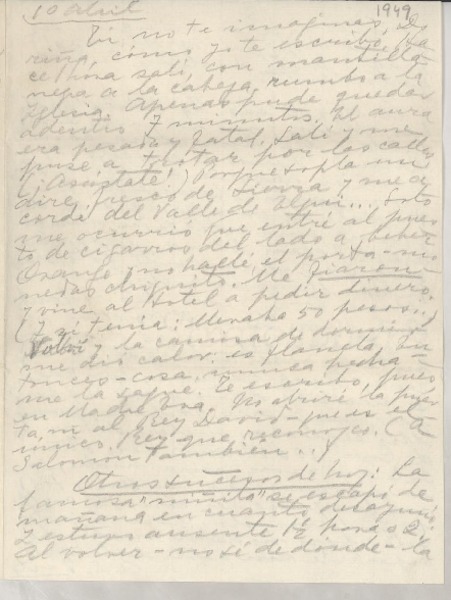 10 abril
1949
Tú no te imaginas,
riña, cómo yo te escribo. Ha-
ce hora salí, con mantilla
negra a la cabeza, rumbo a la
Iglesia. Apenas pude quedar
adentro 7 minutos. El aura
era pesada y fatal. Salí y me
puse a trotar por las calles
(¡Asústate!) Porque sopla un
aire fresco de sierra y me a-
cordé del Valle de Elqui... Esto
me ocurrió que entré al pues
to de cigarros del lado a beber
Orange y no hallé el porta-mo-
nedas chiquito. Me fiaron
y vine al hotel a pedir dinero.
(Y sí tenía: llevaba 50 pesos..)
Volví y la camisa de dormir
me dio calor: es flanela. En-
tonces - cosa nunca hecha -
me la saqué. Te escribo, pues
en Madre Eva. No abriré la puer
ta, ni al Rey David - que es el
único Rey que reconozco. (A
Salomón también...)
Otros sucesos de hoy: La
famosa "niñita" se escapó de
mañana en cuanto desayunó.
y estuvo ausente 1½ hora o 2.
Al volver - no sé de dónde - la